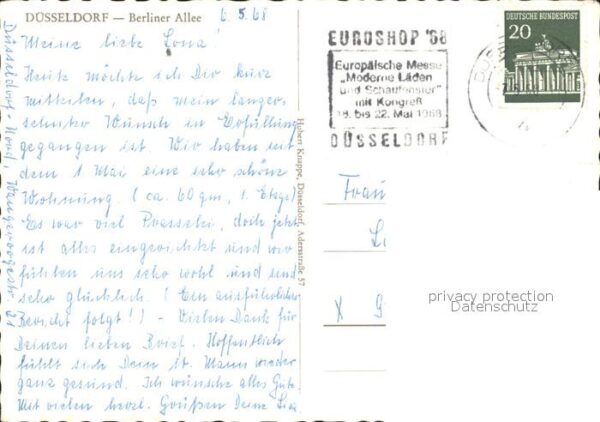 DÜSSELDORF — Berliner Allee
6.5.68
Meine liebe Lona!
Heute möchte ich Dir kurz
mitteilen, daß mein langer-
sehnter Wunsch in Erfüllung
gegangen ist. Wir haben seit
dem 1 Mai eine sehr schöne
Wohnung. (ca. 60 qm, 1. Etage)
Es war viel Prasselei, doch jetzt
ist alles eingerichtet und wir
fühlen uns sehr wohl und sind
sehr glücklich. (Ein ausführlicher
Bericht folgt!) - Vielen Dank für
Deinen lieben Brief. Hoffentlich
fühlt sich Dein lb. Mann wieder
ganz gesund. Ich wünsche alles Gute.
Mit vielen herzl. Grüßen Deine
Düsseldorf-Nord, Wangeroogestr. 21
Hubert Knuppe, Düsseldorf, Adersstraße 57
EUROSHOP '68
Europäische Messe
„Moderne Läden
und Schaufenster"
mit Kongreß
18. bis 22. Mai 1968
DÜSSELDORF
DEUTSCHE BUNDESPOST
20
Frau
privacy protection
Datenschutz